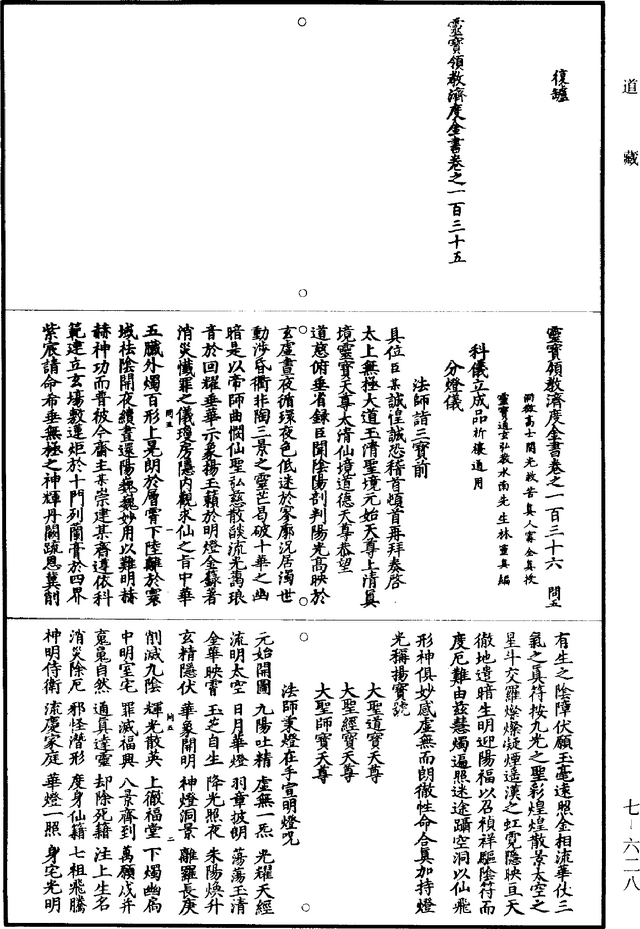 道藏
復爐
靈寶領教濟度金書卷之一百三十五
靈寶領教濟度金書卷之一百三十六　問五
洞微高士開光救苦真人甯全真授
靈寶通玄弘教水南先生林靈真編
科儀立成品祈禳通用
分燈儀
法師詣三寶前
具位臣某誠惶誠恐稽首頓首再拜奏啓
太上無極大道玉清聖境元始天尊上清真
境靈寶天尊太清仙境道德天尊恭望
道慈俯垂省錄臣聞陰陽剖判陽光高映於
玄虛晝夜循環夜色低迷於寥廓況居濁世
動涉昏衢非陶三景之靈芒曷破十華之幽
暗是以帝師曲憫仙聖弘慈散燄流光蕩琅
音於回耀垂華示象揚玉籟於明燈金籙著
消災懺罪之儀瓊房隱內觀求仙之旨中華
問五
五臟外燭百形上晃朗於層霄下陸離於寰
域祛陰開夜續晝還陽巍巍妙用以難明赫
赫神功而普被今齋主某崇建某齋遵依科
範建立玄場數運炬於十門列蘭膏於四界
紫宸請命希垂無極之神輝丹闕疏恩冀削
有生之陰障伏願玉毫遠照金相流華仗三
氣之真符按九光之聖彰煌煌散景太空之
星斗交羅燦燦凝煙遥漢之虹霓隱映亘天
徹地遣暗生明迎陽福以召禎祥驅陰符而
度厄難由茲慧燭遍照迷途躡空洞以仙飛
形神俱妙感虛無而朗徹性命合真加持燈
光稱揚寶號
大聖道寶天尊
大聖經寶天尊
大聖師寶天尊
法師秉燈在手宣明燈呪
元始開圖　九陽吐精　虛無一炁　光耀天經
流明太空　日月華燈　羽章披朗　蕩蕩玉清
金華映霄　玉芝自生　降光照夜　朱陽煥升
玄精隱伏　華象開明　神燈洞景　離羅長庚
問五　二
削滅九陰　輝光散英　上徹福堂　下燭幽扃
中明室宅　罪滅福興　八景齊到　萬願成并
䆗䆗自然　通真達靈　却除死籍　注上生名
消災除厄　邪怪潛形　度身仙籍　七祖飛騰
神明侍衛　流慶家庭　華燈一照　身宅光明
七-六二八